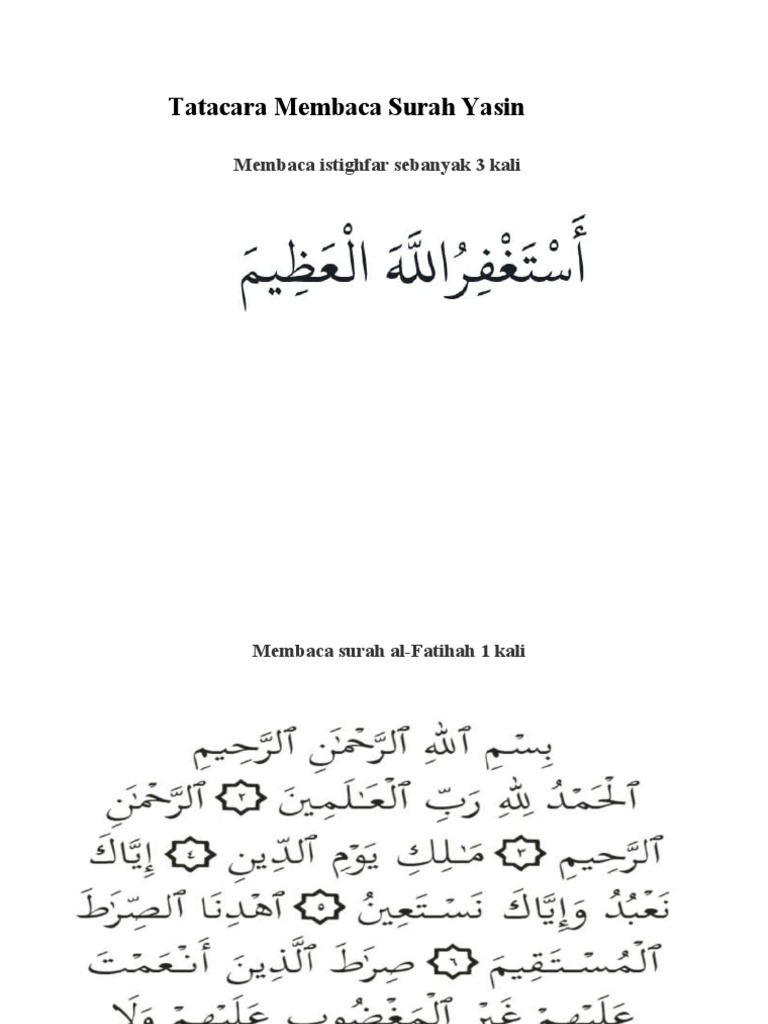 Tatacara Membaca Surah Yasin
Membaca istighfar sebanyak 3 kali
أَسْتَغْفِرُاللَّهَ الْعَظِيمَ
Membaca surah al-Fatihah 1 kali
بِسْمِ ٱللَّهِ ٱلرَّحْمَـٰنِ ٱلرَّحِيمِ
ٱلْحَمْدُ لِلَّهِ رَبِّ ٱلْعَـٰلَمِينَ ٢ ٱلرَّحْمَـٰنِ
ٱلرَّحِيمِ ٣ مَـٰلِكِ يَوْمِ ٱلدِّينِ ٤ إِيَّاكَ
نَعْبُدُ وَإِيَّاكَ نَسْتَعِينُ ٥ ٱهْدِنَا ٱلصِّرَٰطَ
ٱلْمُسْتَقِيمَ ٦ صِرَٰطَ ٱلَّذِينَ أَنْعَمْتَ
عَلَيْهِمْ غَيْرِ ٱلْمَغْضُوبِ عَلَيْهِمْ وَلَا